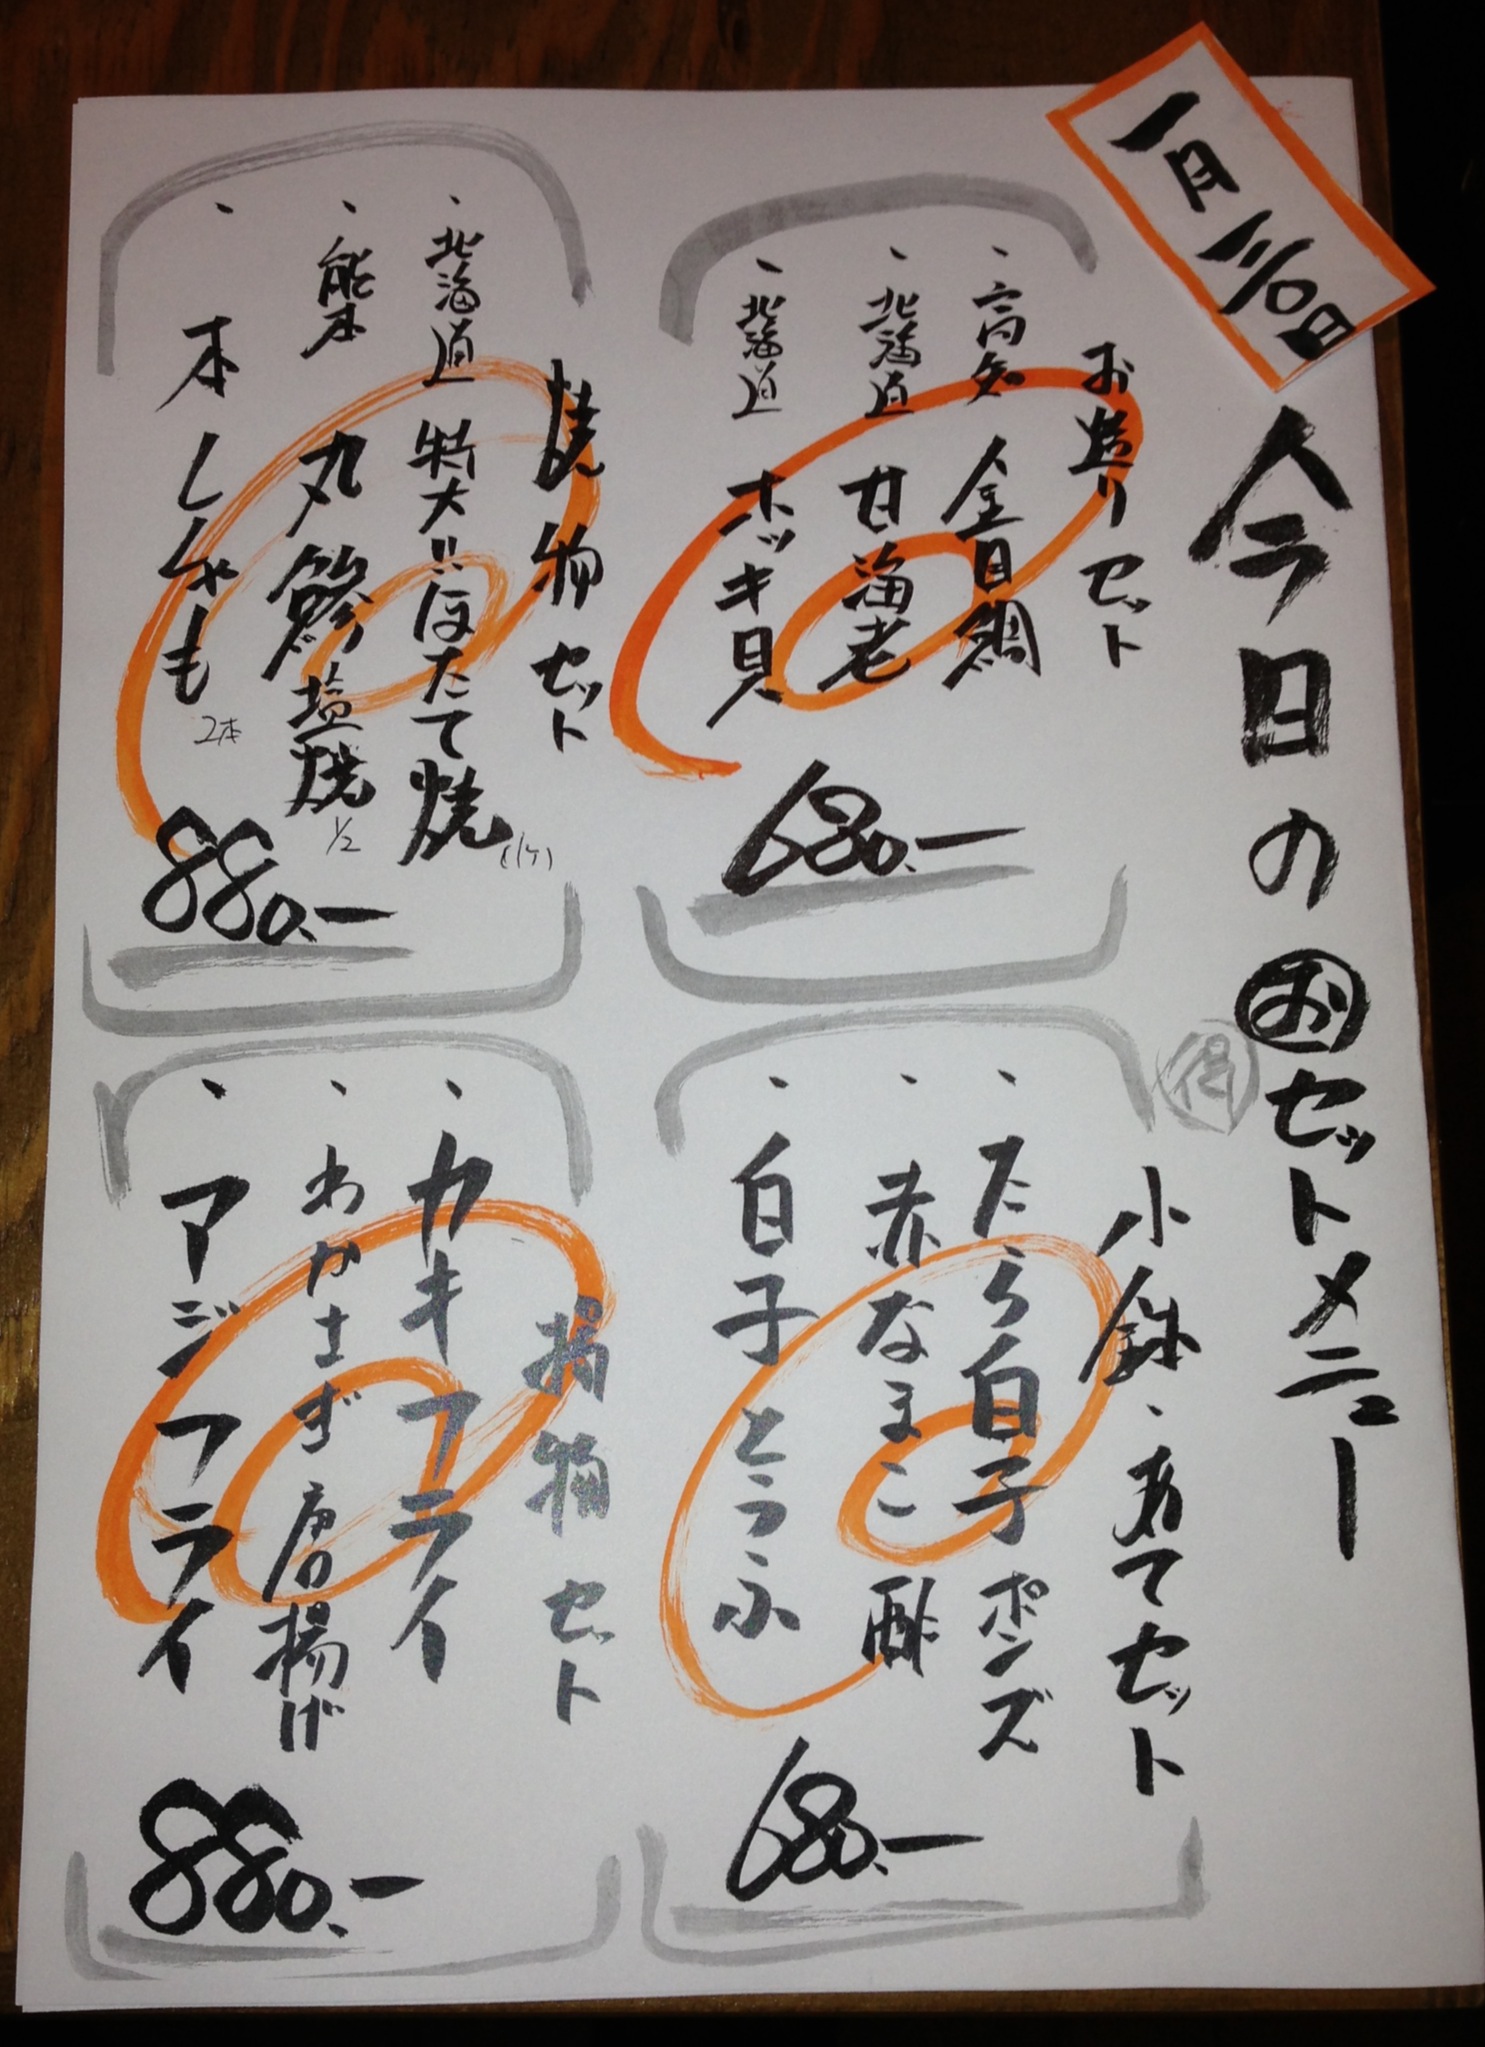 一月三〇日
今日のおセットメニュー
得
お造りセット
・高知 金目鯛
・北海道 甘海老
・北海道 ホッキ貝
680.-
焼物セット
・北海道 特大!!ほたて焼(1ケ)
・熊本 丸鯵塩焼 1/2
・本ししゃも 2本
880.-
小鉢・あてセット
・たら白子ポンズ
・赤なまこ酢
・白子とうふ
680.-
揚物セット
・カキフライ
・わかさぎ唐揚げ
・アジフライ
880.-